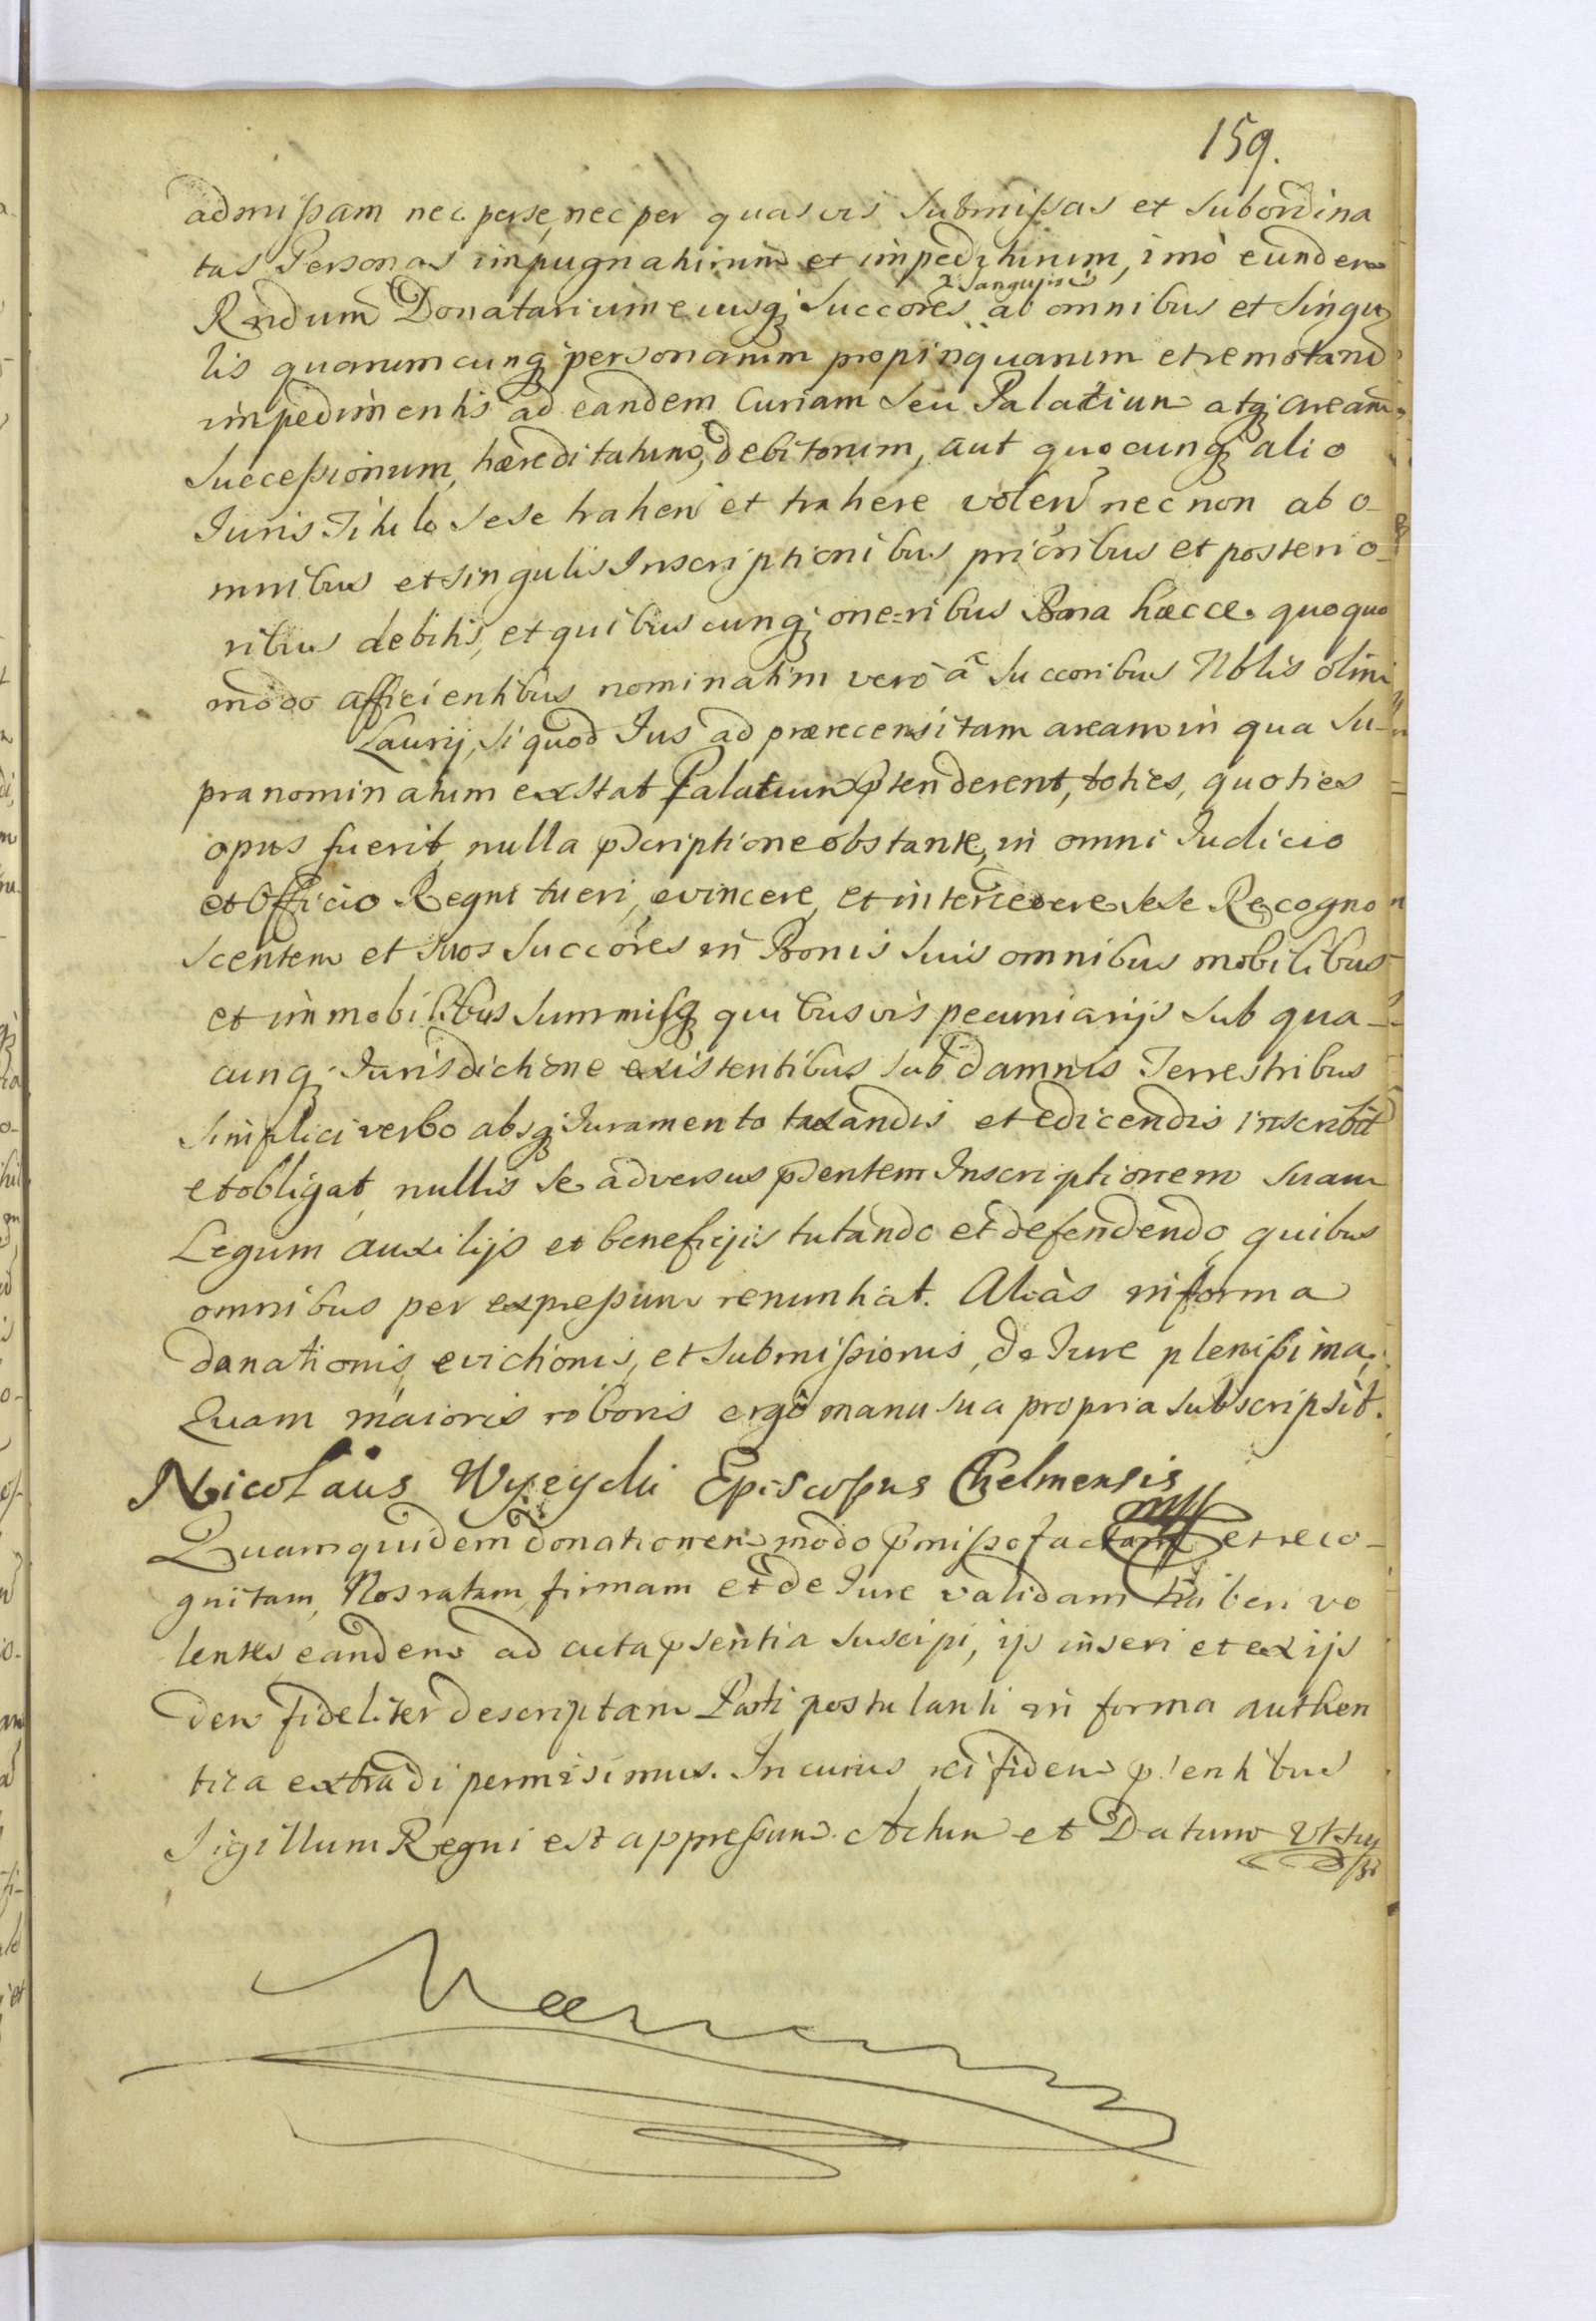 159.
admissam nec per se, nec per quasvis submissas et subordina
tas Personas impugnaturum et impediturum, imò eundem
Rndum Donatarium eiusq; Succores ab omnibus et singu
&sanguineis
lis quorumcunq; personarum propinquarum et remotarum
impedimentis ad eandem Curiam seu Palatium atq; aream
Successionum, hæreditatum, debitorum, aut quocunq; alio
Iuris Titulo sese trahen et trahere volen nec non ab o-
mnibus et singulis Inscriptionibus prioribus et posterio-
ribus debitis, et quibuscunq; one=ribus Bona hæcce quoquo
modo afficientibus nominatim verò à Succoribus Nblis olim
Laurij, si quod Ius ad prærecensitam aream in qua su-
pranominatum exstat Palatium ptenderent, toties, quoties
opus fuerit, nulla pscriptione obstante, in omni Iudicio
et Officio Regni tueri, evincere, et intercedere sese Recogno
scentem et suos Succores in Bonis suis omnibus mobilibus
et immobilibus summisq; quibusvis pecuniarijs sub qua-
cunq; Iurisdictione existentibus sub damnis Terrestribus
simplici verbo absq; Iuramento taxandis et edicendis inscribit
et obligat, nullis se adversus psentem Inscriptionem suam
Legum auxilijs et beneficijs tutando et defendendo, quibus
omnibus per expressum renuntiat. Aliàs in forma
donationis, evictionis, et submissionis, de Iure plenissima.
Quam maioris roboris ergò manu sua propria subscripsit.
Nicolaus Wyżycki Episcopus Chelmensis
mpp
Quamquidem donationem modo pmisso factam et reco-
gnitam, Nos ratam, firmam et de Iure validam haberi vo
lentes eandem ad acta psentia suscipi, ijs inseri et ex ijs
dem fideliter descriptam Parti postulanti in forma authen
tica extradi permisimus. In cuius rei fidem psentibus
Sigillum Regni est appressum. Actum et Datum Ut sup